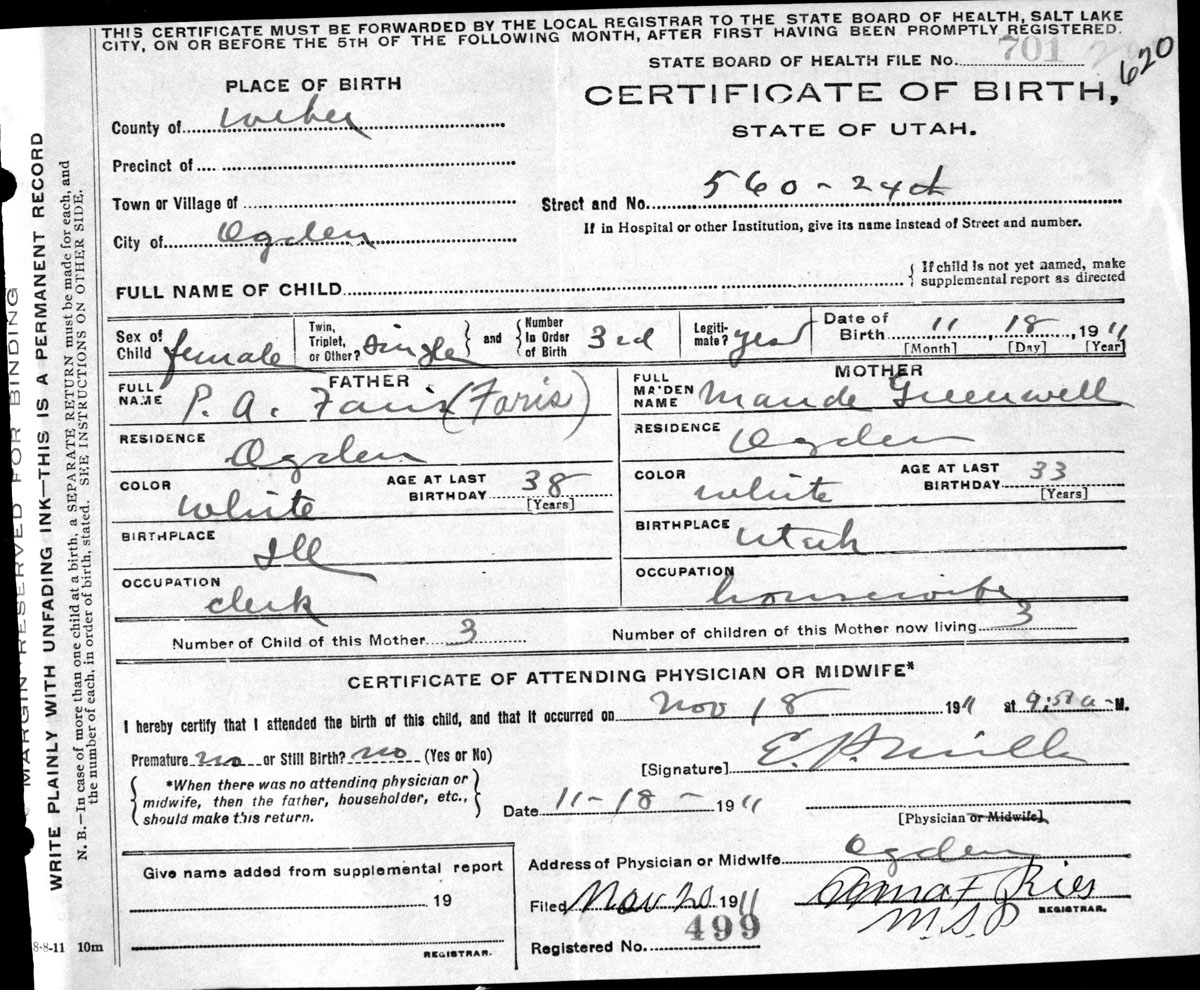 THIS CERTIFICATE MUST BE FORWARDED BY THE LOCAL REGISTRAR TO THE STATE BOARD OF HEALTH, SALT LAKE
CITY, ON OR BEFORE THE 5TH OF THE FOLLOWING MONTH, AFTER FIRST HAVING BEEN PROMPTLY REGISTERED.
STATE BOARD OF HEALTH FILE No. 701
620
PLACE OF BIRTH
CERTIFICATE OF BIRTH,
STATE OF UTAH.
County of Weber
Precinct of
Town or Village of
Street and No. 560 - 24th
City of Ogden
If in Hospital or other Institution, give its name instead of Street and number.
FULL NAME OF CHILD
{ If child is not yet named, make
supplemental report as directed
Sex of Child female
Twin, Triplet, or Other? single } and { Number In Order of Birth 3rd
Legiti-mate? yes
Date of Birth 11 18, 1911
[Month] [Day] [Year]
FATHER
FULL NAME P. A. Faris (Faris)
MOTHER
FULL MAIDEN NAME Maude Greenwell
RESIDENCE Ogden
RESIDENCE Ogden
COLOR white AGE AT LAST BIRTHDAY 38 [Years]
COLOR white AGE AT LAST BIRTHDAY 33 [Years]
BIRTHPLACE Ill
BIRTHPLACE Utah
OCCUPATION clerk
OCCUPATION housewife
Number of Child of this Mother 3
Number of children of this Mother now living 3
CERTIFICATE OF ATTENDING PHYSICIAN OR MIDWIFE*
I hereby certify that I attended the birth of this child, and that it occurred on Nov 18 1911 at 9:51 a M.
Premature no or Still Birth? no (Yes or No)
[Signature] E. P. Mills
{ *When there was no attending physician or
midwife, then the father, householder, etc.,
should make this return. }
Date 11-18- 1911
[Physician or Midwife]
Address of Physician or Midwife Ogden
Give name added from supplemental report
19
REGISTRAR.
Filed Nov 20 1911
Anna F Ries
M.S.P
REGISTRAR.
Registered No. 499
8-8-11 10m
MARGIN RESERVED FOR BINDING
WRITE PLAINLY WITH UNFADING INK—THIS IS A PERMANENT RECORD
N. B.—In case of more than one child at a birth, a SEPARATE RETURN must be made for each, and
the number of each, in order of birth, stated. SEE INSTRUCTIONS ON OTHER SIDE.